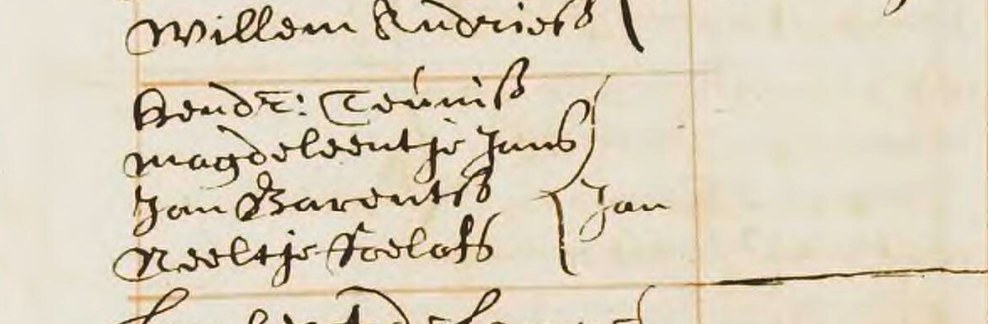 Willem Andriess
Hendr: Teuniss
Magdeleentje Jans
Jan Barentss
Jan
Neeltje Roelofs